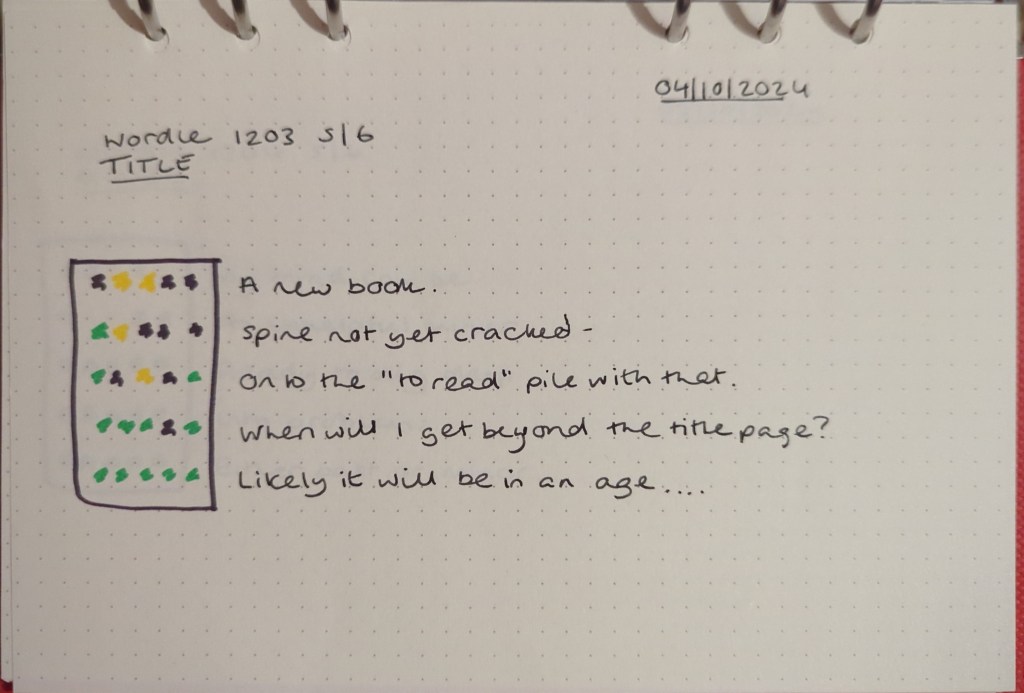 04/10/2024
Wordle 1203 5/6
TITLE
A new book.
Spine not yet cracked -
Onto the "to read" pile with that.
When will I get beyond the title page?
Likely it will be in an age....